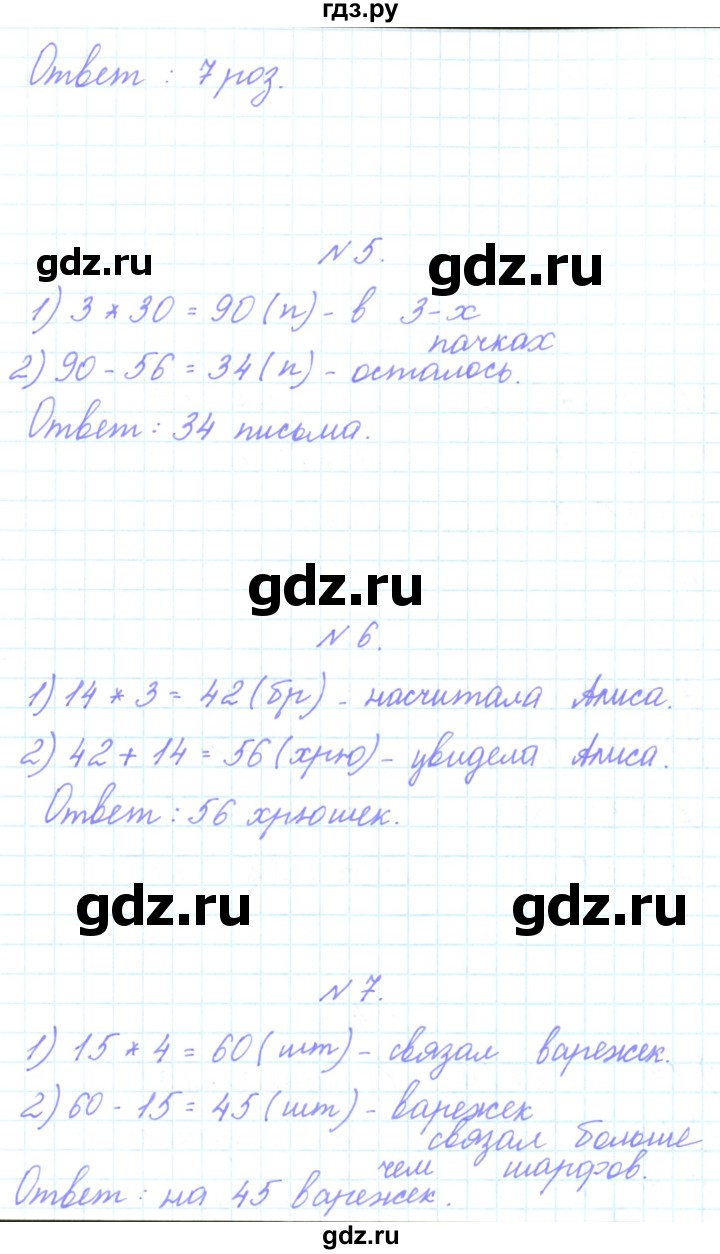 гдз.ру
Ответ : 7 роз.
gdz.ru
N 5.
gdz.ru
1) 3 * 30 = 90 (п) - в 3-х
пачках
2) 90 - 56 = 34 (п) - осталось.
Ответ : 34 письма.
gdz.ru
N 6.
1) 14 * 3 = 42 (бр) - насчитала Алиса.
2) 42 + 14 = 56 (хрю) - увидела Алиса.
Ответ : 56 хрюшек.
gdz.ru
gdz.ru
N 7.
1) 15 * 4 = 60 (шт) - связал варежек.
2) 60 - 15 = 45 (шт) - варежек
связал больше
чем шарфов.
Ответ : на 45 варежек.
gdz.ru